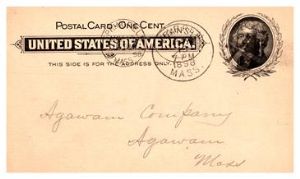 POSTAL CARD · ONE CENT.
UNITED STATES OF AMERICA.
THIS SIDE IS FOR THE ADDRESS ONLY.
4 PM
1898
MASS.
Agawam Company
Agawam
Mass